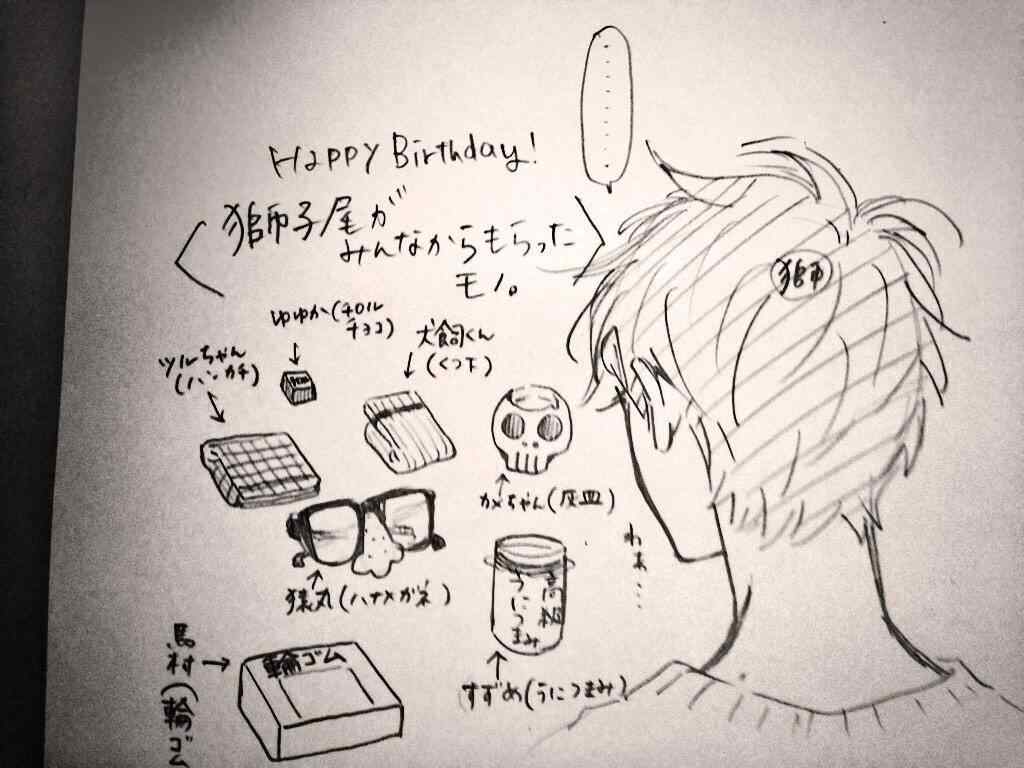 Happy Birthday!
獅子尾が
みんなからもらった
モノ。
獅
ゆゆか(チロル
チョコ)
ツルちゃん
(ハンカチ)
犬飼くん
(くつ下)
カメちゃん(灰皿)
猿丸(ハナメガネ)
高級
うにつまみ
すずめ(うにつまみ)
わぁ…
馬村(輪ゴム
輪ゴム